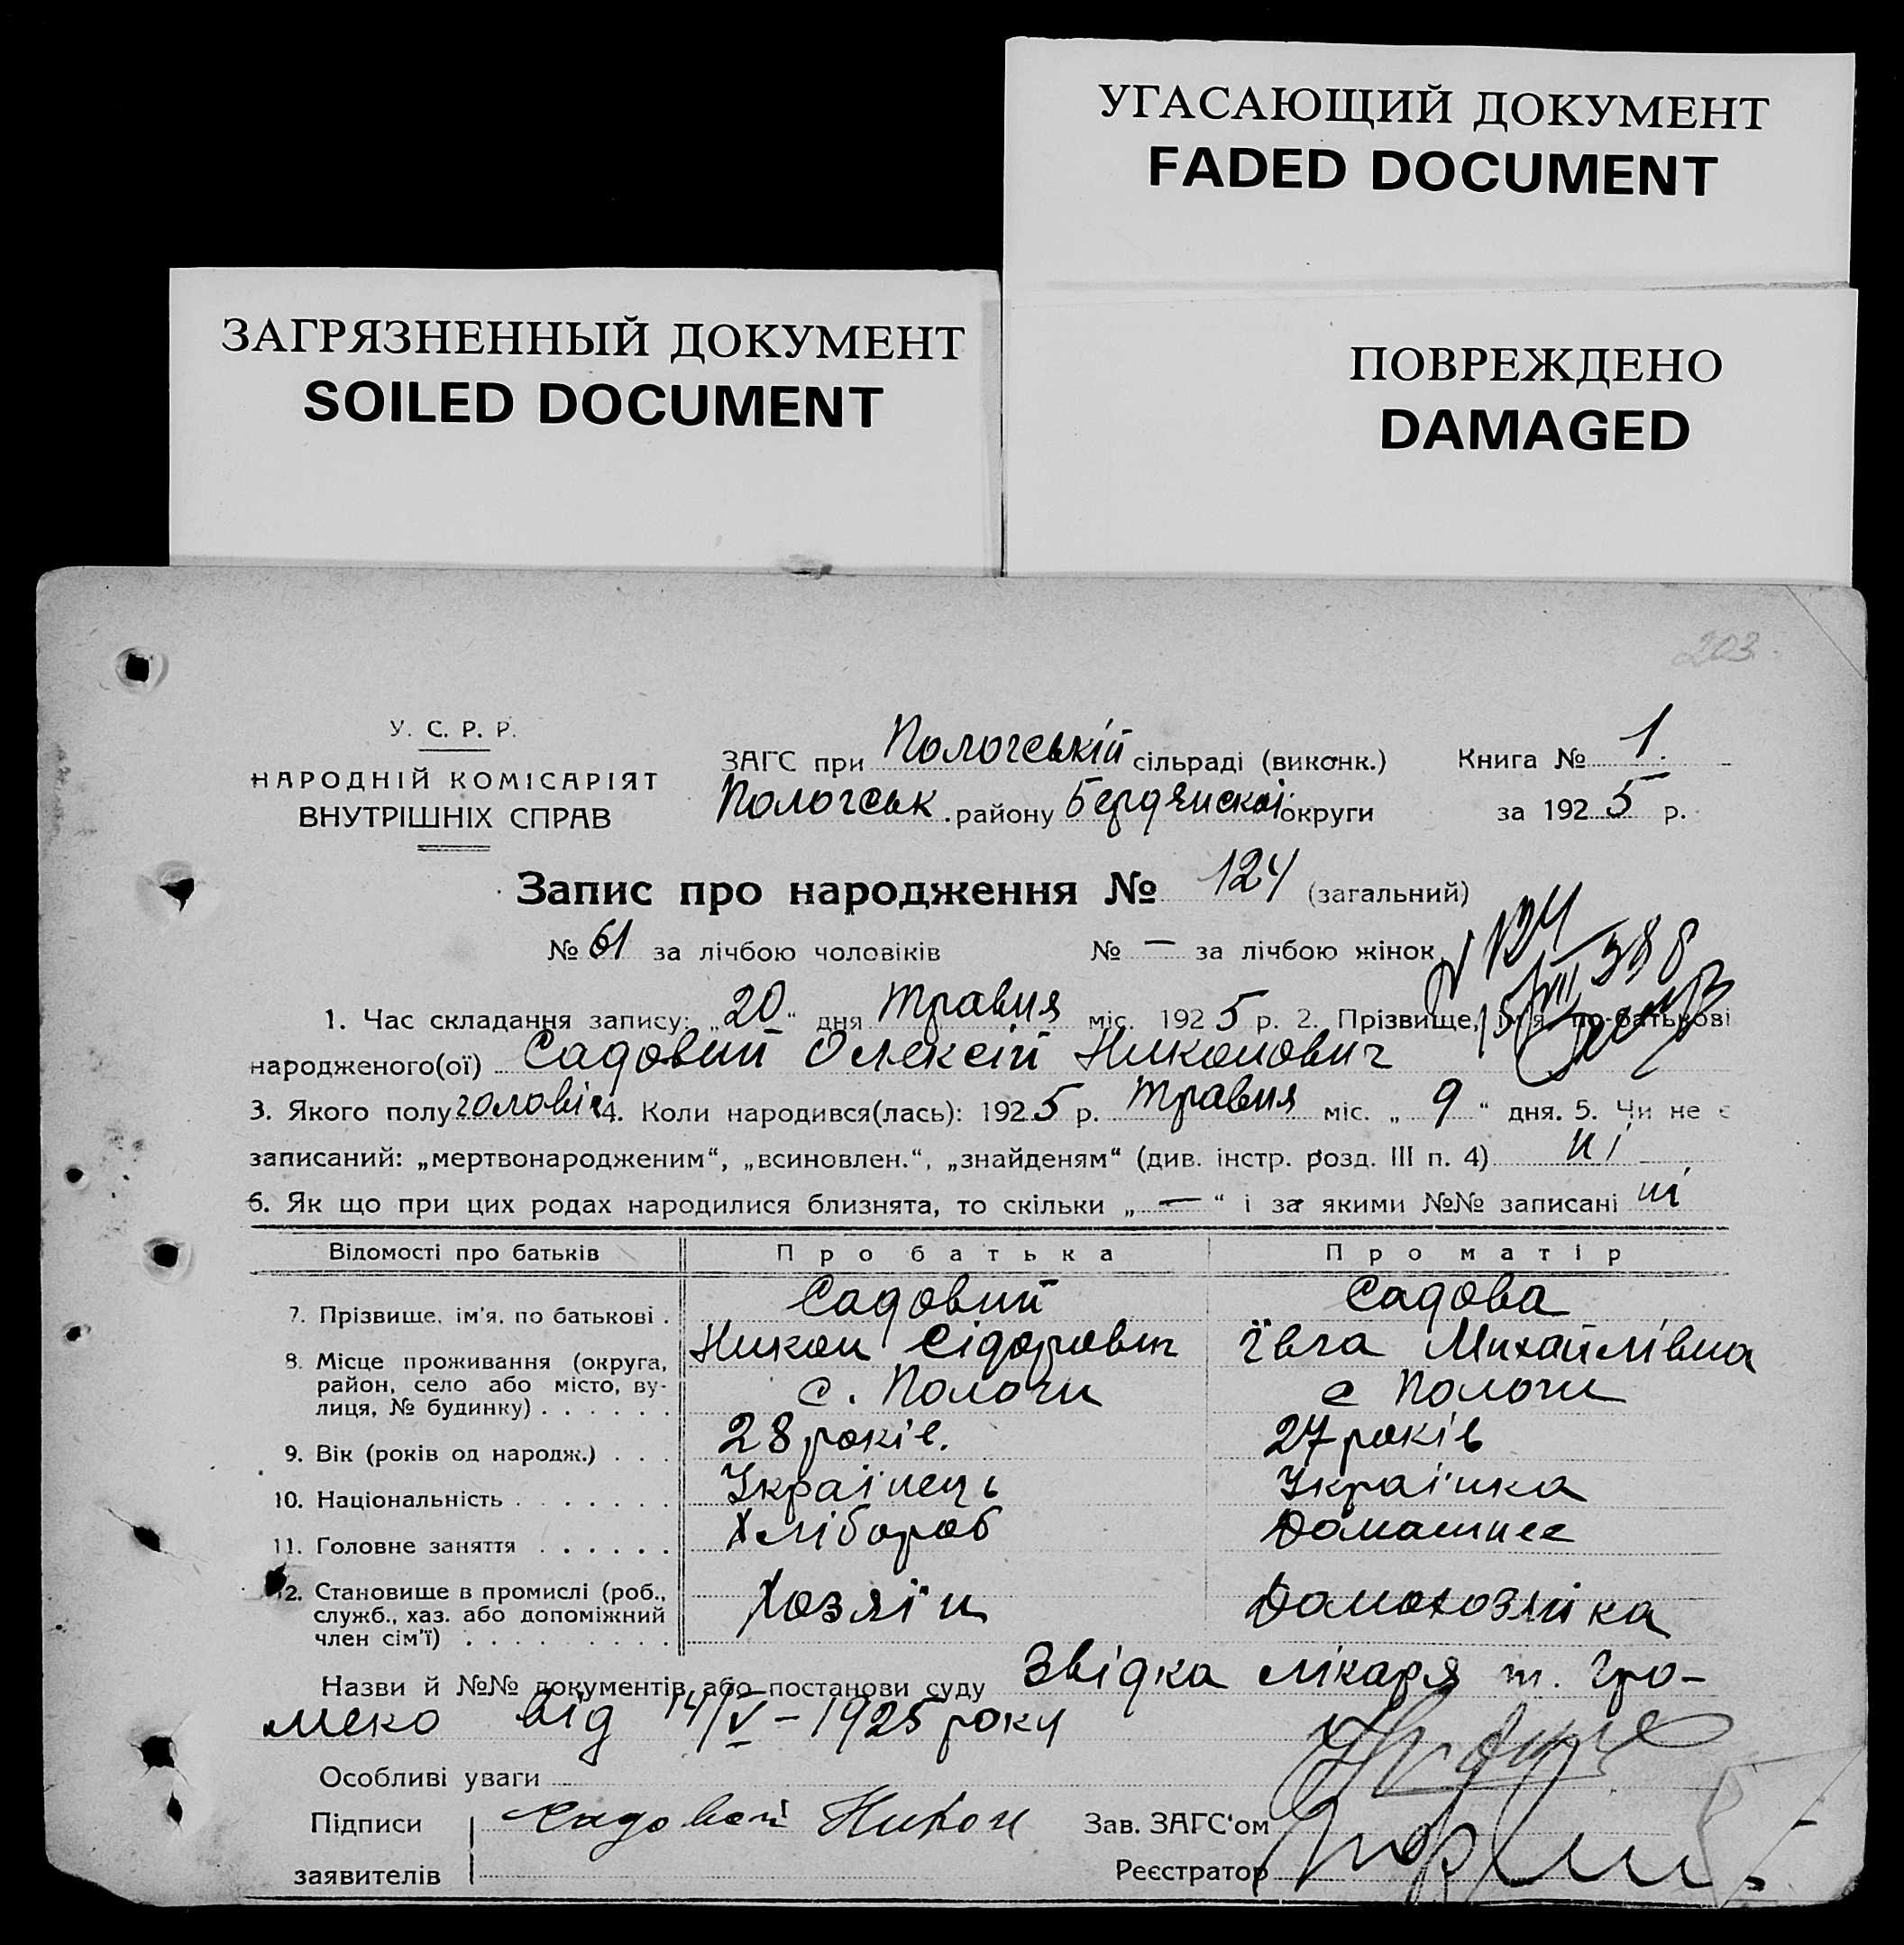 УГАСАЮЩИЙ ДОКУМЕНТ
FADED DOCUMENT
ЗАГРЯЗНЕННЫЙ ДОКУМЕНТ
SOILED DOCUMENT
ПОВРЕЖДЕНО
DAMAGED
203.
У. С. Р. Р.
НАРОДНІЙ КОМІСАРІЯТ
ВНУТРІШНІХ СПРАВ
ЗАГС при Пологській сільраді (виконк.) Книга № 1.
Пологськ. району Бердянскої округи за 1925 р.
Запис про народження № 124 (загальний)
№ 61 за лічбою чоловіків № — за лічбою жінок
1. Час складання запису: „20" дня травня міс. 1925 р. 2. Прізвище, ім'я, по-батькові
народженого(ої) Садовий Олексій Никонович
3. Якого полу чоловіч 4. Коли народився(лась): 1925 р. травня міс. „9" дня. 5. Чи не є
записаний: „мертвонародженим", „всиновлен.", „знайденям" (див. інстр. розд. III п. 4) ні
6. Як що при цих родах народилися близнята, то скільки „—" і за якими №№ записані ні
Відомості про батьків Про батька Про матір
7. Прізвище, ім'я, по батькові . Садовий Садова
Никон Сідорович Ївга Михайлівна
8. Місце проживання (округа, район, село або місто, ву-
лиця, № будинку) . . . . . . с. Пологи с Пологи
9. Вік (років од народж.) . . . 28 років. 27 років
10. Національність . . . . . . . Українець Українка
11. Головне заняття . . . . . . Хлібороб Домашнее
12. Становище в промислі (роб.,
служб., хаз. або допоміжний Хозяїн Домохозяйка
член сім'ї) . . . . . . . . .
Назви й №№ документів або постанови суду Звідка лікаря т. Гро-
меко від 14/V – 1925 року
Особливі уваги
Підписи Садовой Никон Зав. ЗАГС'ом
заявителів Реєстратор